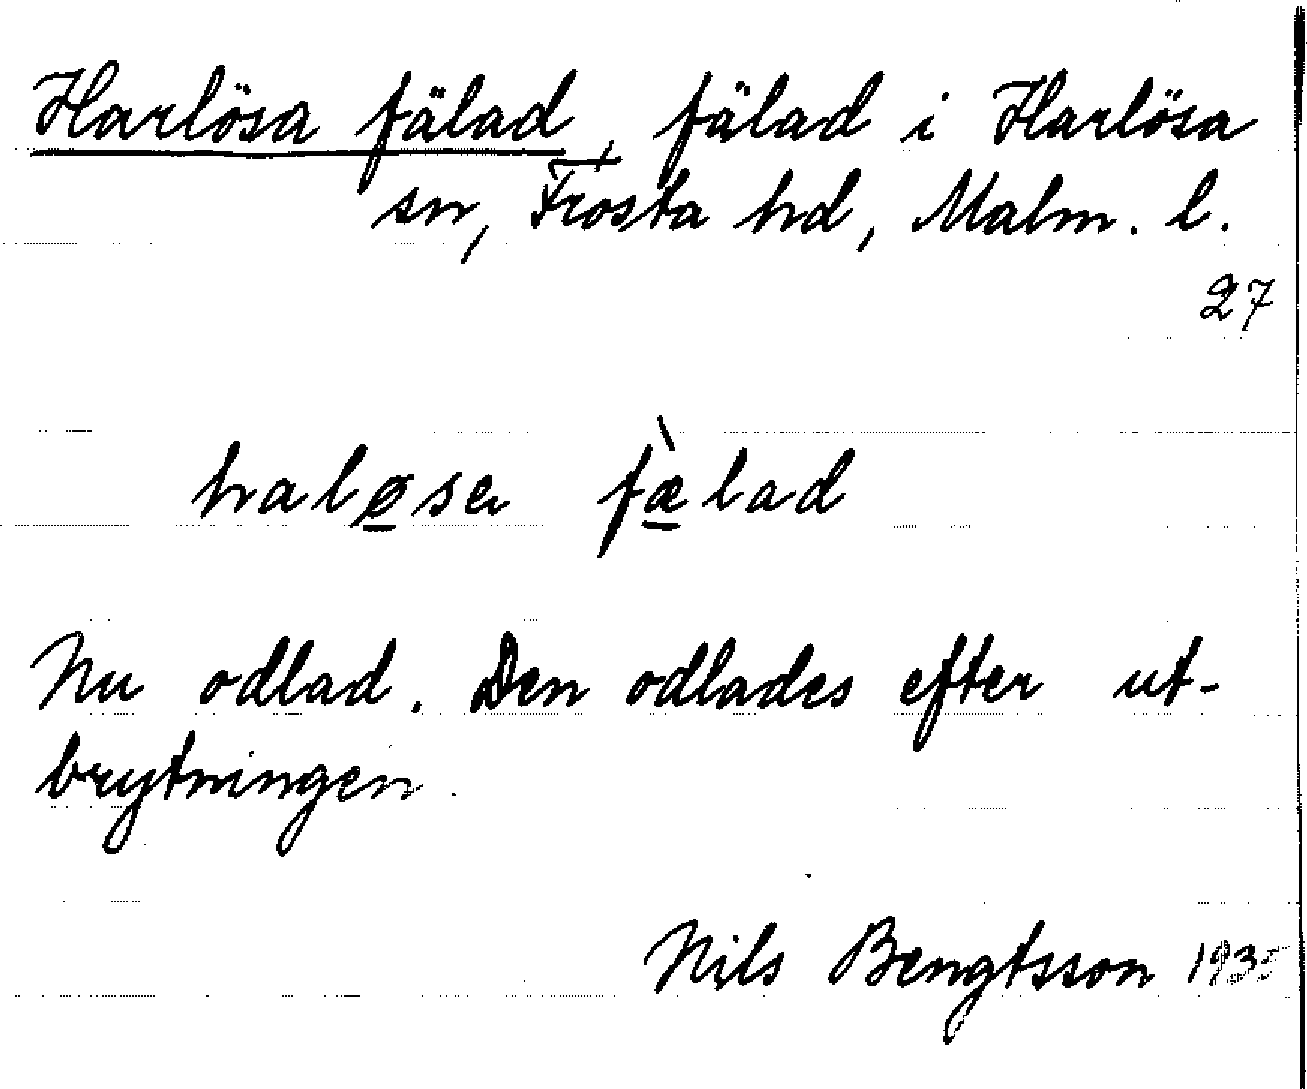 Harlösa fälad, fälad i Harlösa
sn, Frosta hd, Malm. l.
27
haløsa fæ̀lad
Nu odlad. Den odlades efter ut-
brytningen.
Nils Bengtsson 1935